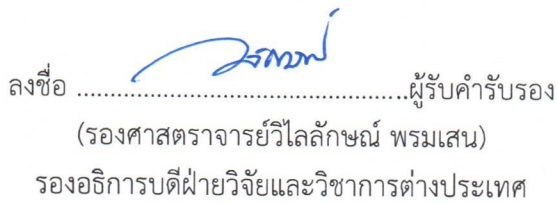 ลงชื่อ ..............................................ผู้รับคำรับรอง
(รองศาสตราจารย์วิไลลักษณ์ พรมเสน)
รองอธิการบดีฝ่ายวิจัยและวิชาการต่างประเทศ